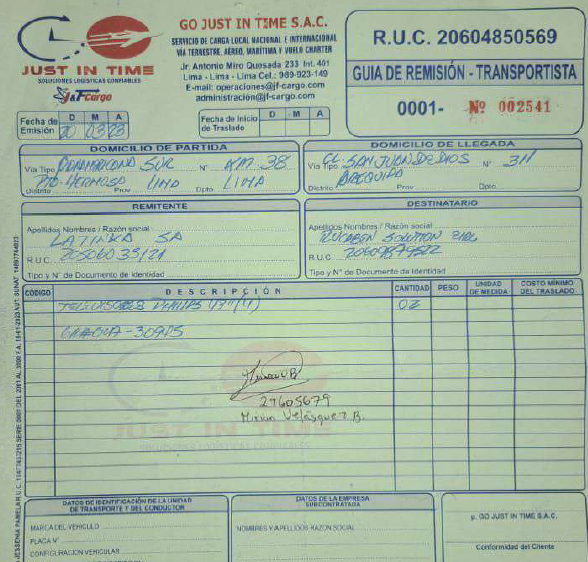 GO JUST IN TIME S.A.C.
SERVICIO DE CARGA LOCAL NACIONAL E INTERNACIONAL
VIA TERRESTRE, AÉREO, MARÍTIMA Y VUELO CHARTER
Jr. Antonio Miro Quesada 233 Int. 401
Lima - Lima - Lima Cel.: 989-923-149
E-mail: operaciones@jf-cargo.com
administracion@jf-cargo.com
JUST IN TIME
SOLUCIONES LOGISTICAS CONFIABLES
J&F Cargo
R.U.C. 20604850569
GUIA DE REMISIÓN - TRANSPORTISTA
0001- Nº 002541
Fecha de Emisión D M A
20 03 23
Fecha de Inicio de Traslado D M A
DOMICILIO DE PARTIDA
Vía Tipo PANAMERICANA SUR Nº KM 38
Distrito Pto. HERMOSO Prov. LIMA Dpto. LIMA
DOMICILIO DE LLEGADA
Vía Tipo CL. SAN JUAN DE DIOS Nº 311
Distrito AREQUIPA Prov. Dpto.
REMITENTE
Apellidos Nombres / Razón social
LATINKA SA
R.U.C. 20506035121
Tipo y Nº de Documento de Identidad
DESTINATARIO
Apellidos Nombres / Razón social
SOLUTION EIRL
R.U.C.
Tipo y Nº de Documento de Identidad
CÓDIGO DESCRIPCIÓN CANTIDAD PESO UNIDAD DE MEDIDA COSTO MINIMO DEL TRASLADO
TELEVISORES PHILIPS 02
27605679
Mirian Velásquez B.
JUST IN TIME
SOLUCIONES LOGISTICAS CONFIABLES
DATOS DE IDENTIFICACIÓN DE LA UNIDAD
DE TRANSPORTE Y DEL CONDUCTOR
MARCA DEL VEHICULO
PLACA Nº
CONFIGURACIÓN VEHICULAR
DATOS DE LA EMPRESA
SUBCONTRATADA
NOMBRES Y APELLIDOS RAZON SOCIAL
p. GO JUST IN TIME S.A.C.
Conformidad del Cliente